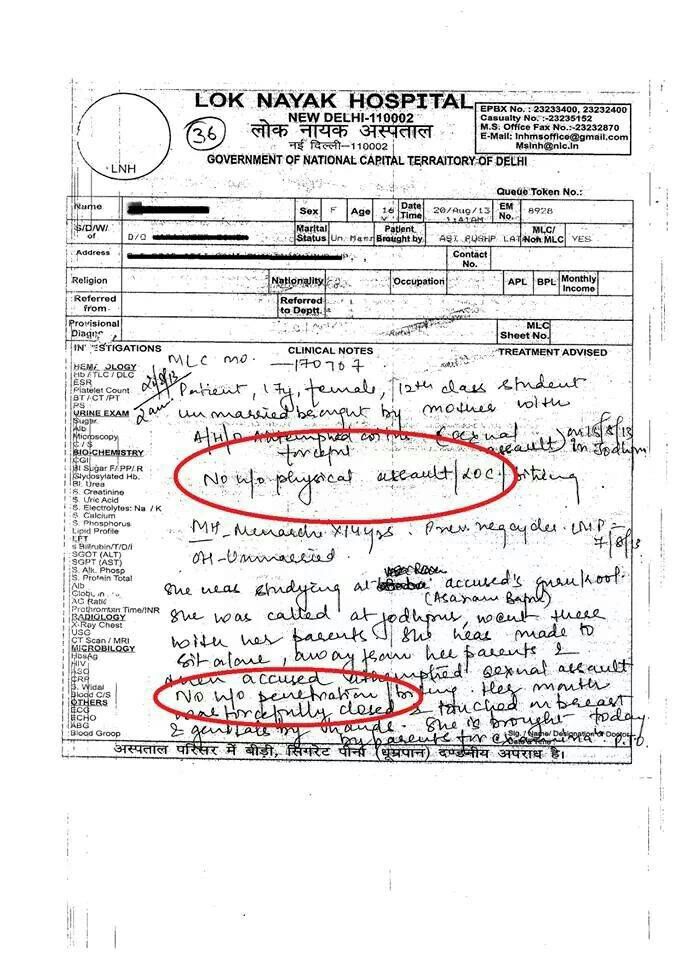 LOK NAYAK HOSPITAL
NEW DELHI-110002
लोक नायक अस्पताल
नई दिल्ली-110002
GOVERNMENT OF NATIONAL CAPITAL TERRAITORY OF DELHI
36
LNH
EPBX No. : 23233400, 23232400
Casualty No.:-23235152
M.S. Office Fax No.:-23232870
E-Mail: lnhmsoffice@gmail.com
Mslnh@nic.in
Queue Token No.:
Name Sex F Age 16 Y Date Time 20/Aug/13 1:41AM EM No. 8928
S/D/W/ of D/O Marital Status Patient Brought by ASI PUSHP LAT MLC/ Non MLC YES
Address Contact No.
Religion Nationality Occupation APL BPL Monthly Income
Referred from Referred to Deptt.
Provisional MLC Sheet No.
CLINICAL NOTES TREATMENT ADVISED
MLC no. 170707
20/8/13
2 am
Patient, 17y, female, 12th class student
unmarried brought by mother with
A/H/O Attempted sexual assault on 15/8/13 in Jodhpur
forceful
No h/o physical assault / LOC / biting
MH - Menarche X 14yrs. Prev. reg cycles. LMP - 7/8/13
OH - Unmarried.
She was studying at accused's gurukool.
(Asaram Bapu)
She was called at jodhpur, went there
with her parents. She was made to
sit alone, away from her parents &
then accused attempted sexual assault
No h/o penetration / biting. Her mouth
was forcefully closed & touched on breast
& genitals by hands. She is brought today
by parents for P.T.O.
Sig. / Name/ Designation of Doctor
INVESTIGATIONS
HEMATOLOGY
Hb / TLC / DLC
ESR
Platelet Count
BT / CT / PT
PS
URINE EXAM
Sugar
Alb
Microscopy
C / S
BIO-CHEMISTRY
Bl Sugar F/ PP/ R
Glycosylated Hb.
Bl. Urea
S. Creatinine
S. Uric Acid
S. Electrolytes: Na / K
S. Calcium
S. Phosphorus
Lipid Profile
LFT
s Bilirubin/T/D/I
SGOT (AST)
SGPT (AST)
S. Alk. Phosp
S. Protein Total
Alb
AG Ratio
Prothrombin Time/INR
RADIOLOGY
X-Ray Chest
USG
CT Scan / MRI
MICROBIOLOGY
HbsAg
HIV
ASO
CRP
S. Widal
Blood C/S
OTHERS
ECG
ECHO
ABG
Blood Group
अस्पताल परिसर में बीड़ी, सिगरेट पीना (धूम्रपान) दण्डनीय अपराध है।